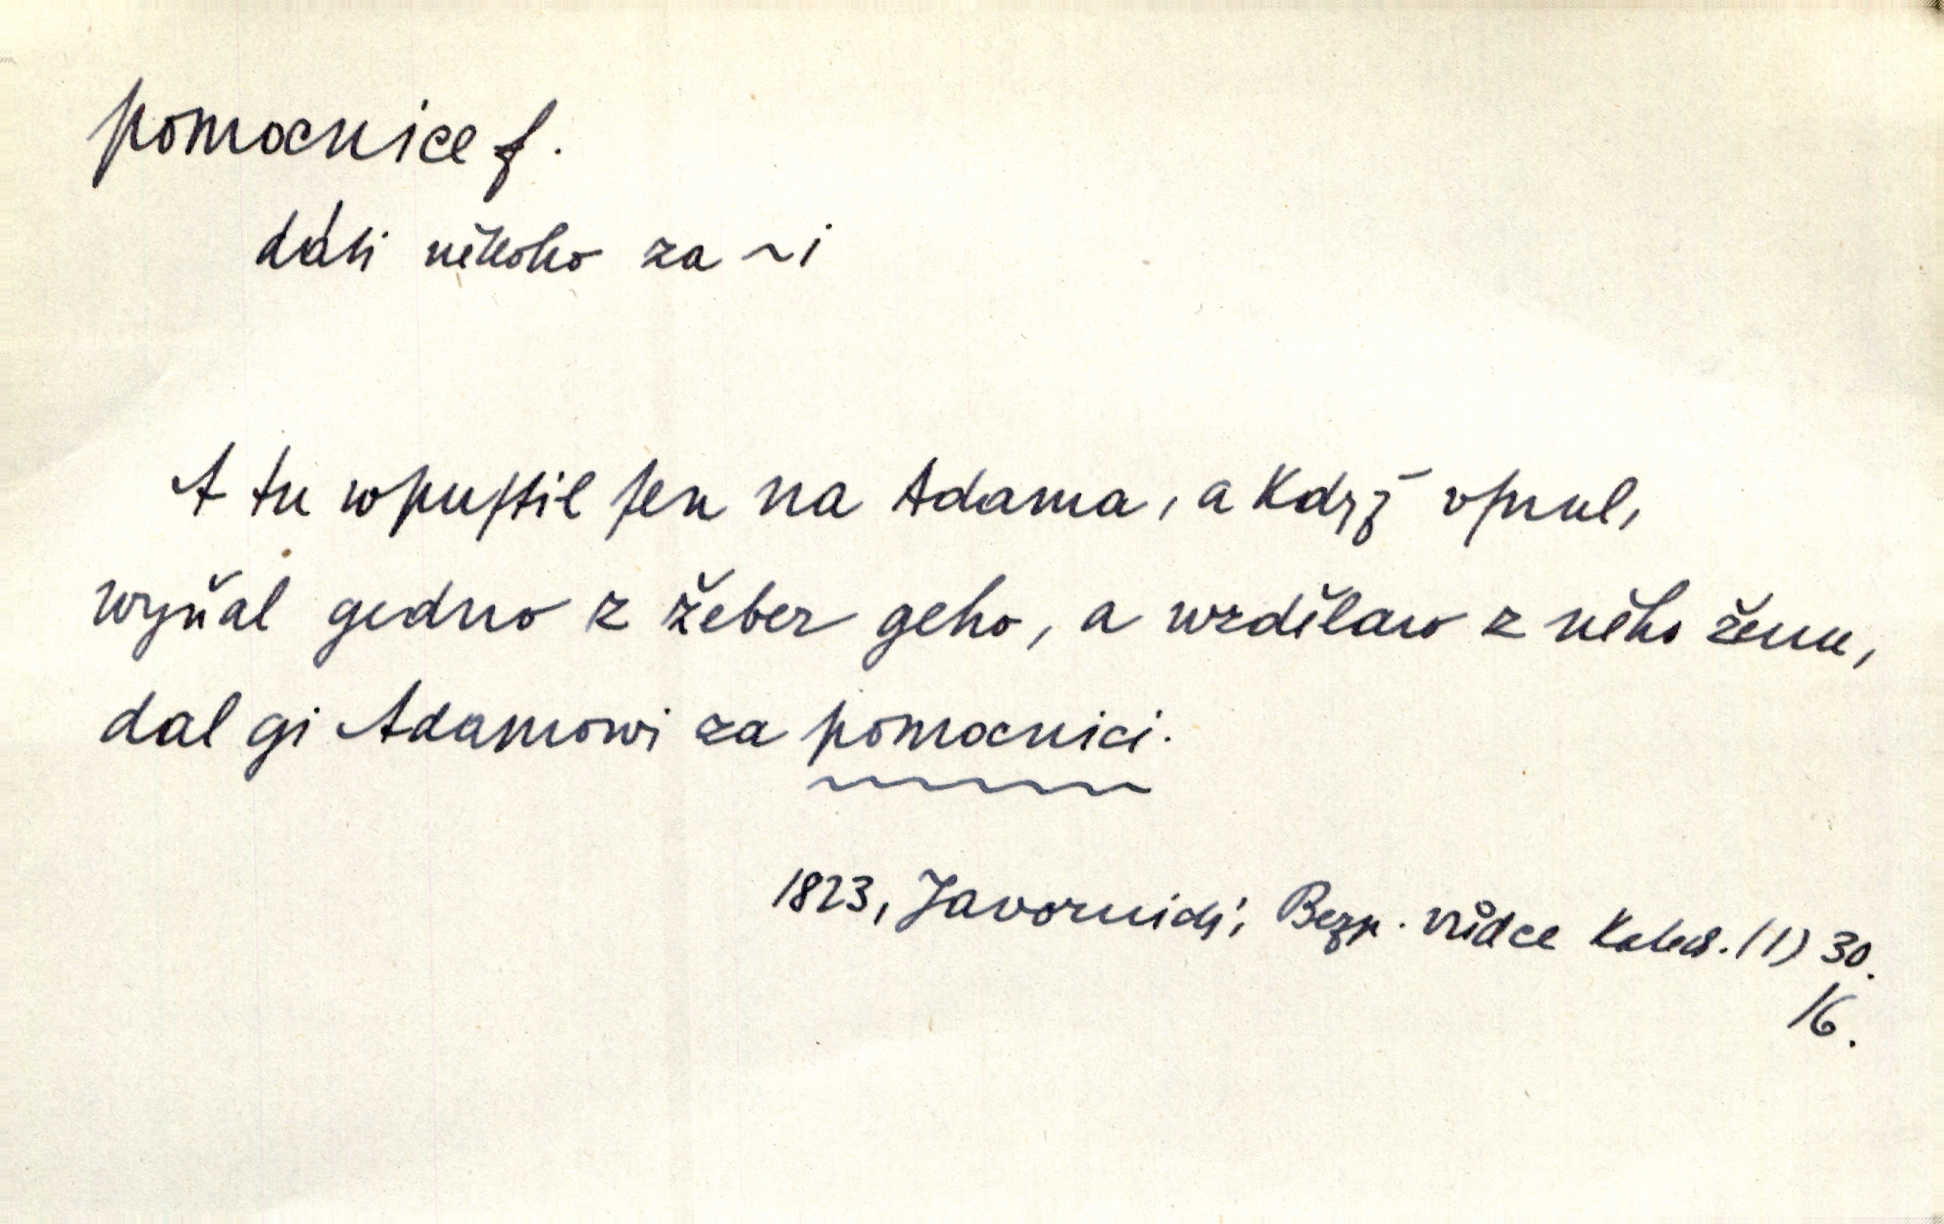 pomocnice f.
dáti někoho za ~i
A tu wpuſtil ſen na Adama, a když vſnul,
wyňal gedno z žeber geho, a wzdělaw z něho ženu,
dal gi Adamowi za pomocnici.
1823, Javornický, Bezp. vůdce Kated. (1) 30.
16.